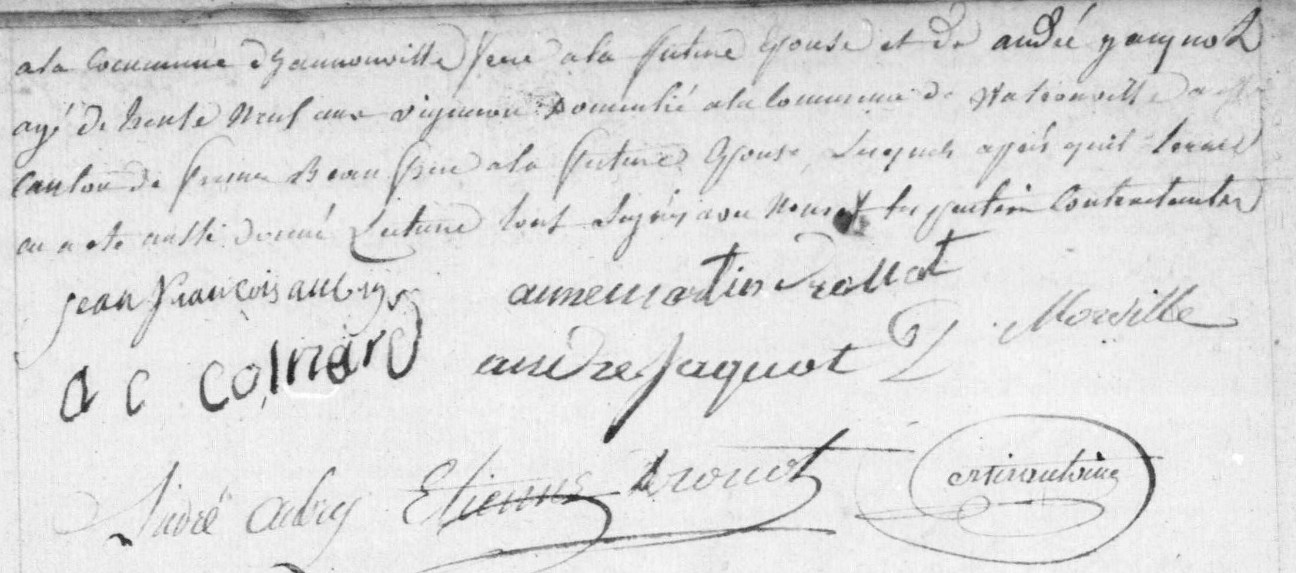 a la Commune d'hannonville frere a la future Epouse et de andré yacquot
agé de trente neuf ans vigneron Domicilié a la Commune de hatronville
Canton de frere a la future Epouse, Lesquels après quil
au acte aussi donné Lecture tout Signés avec Nous les parties Contractantes
jean françois aubry annemartin drouot
a c colnard andre Jaquot Morville
andré aubry Etienne drouot